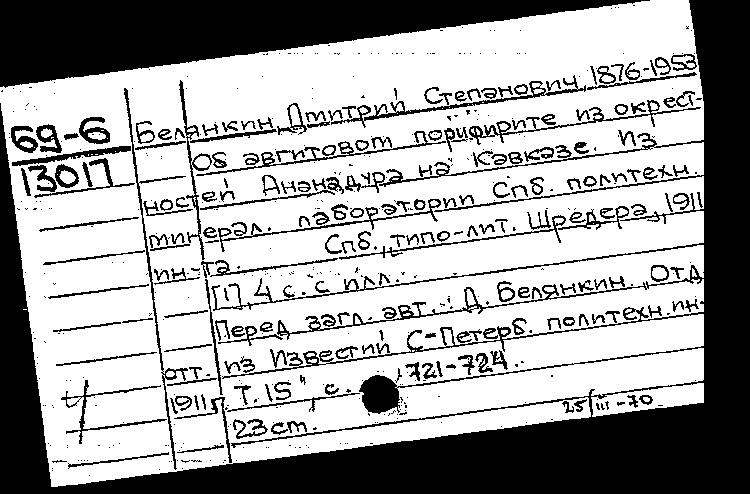 69-6
13017
Белянкин, Дмитрий Степанович, 1876-1953
Об авгитовом порфирите из окрест-
ностей Ананадура на Кавказе. Из
минерал. лаборатории Спб. политехн.
ин-та. Спб., типо-лит. Шредера, 1911
[1], 4 с. с илл.
Перед загл. авт.: Д. Белянкин. „Отд.
отт. из Известий С-Петерб. политехн. ин-
1911г. Т. 15", с. 721-724.
23 см.
25/III-70